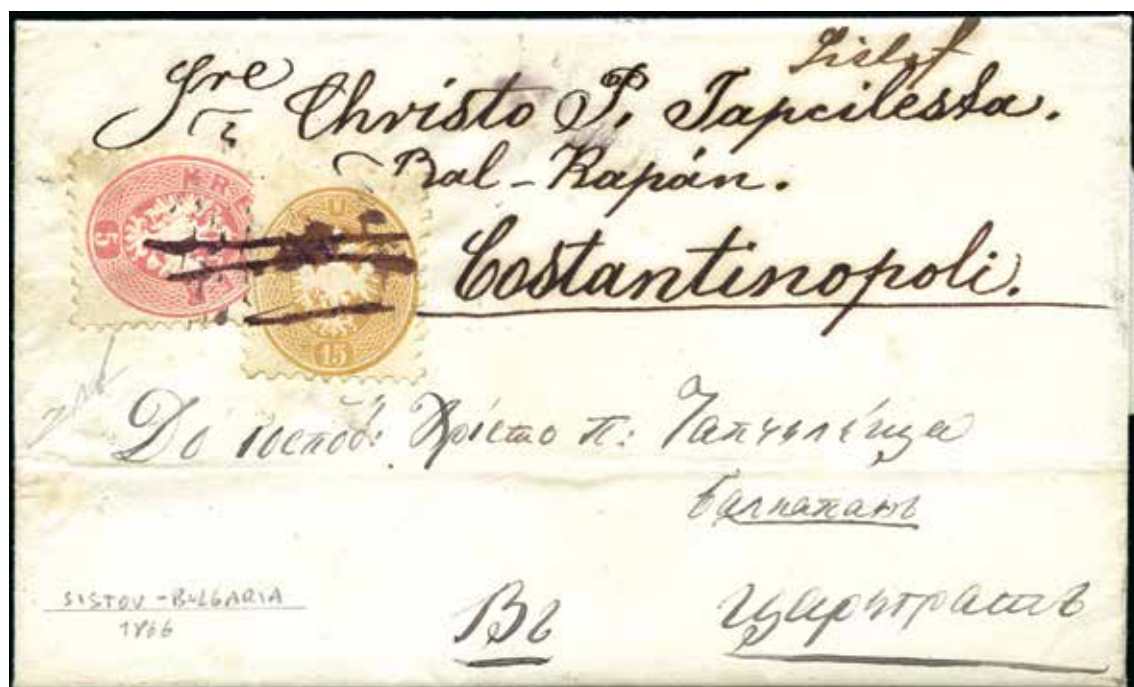 Sistof
Sre Christo P. Tapcilesta.
Bal-Kapán.
Costantinopoli.
5 KR
15
До Господ: Хрісто п: Тапчилéща
Балкапанъ
Въ Цариградъ
SISTOV - BULGARIA
1866